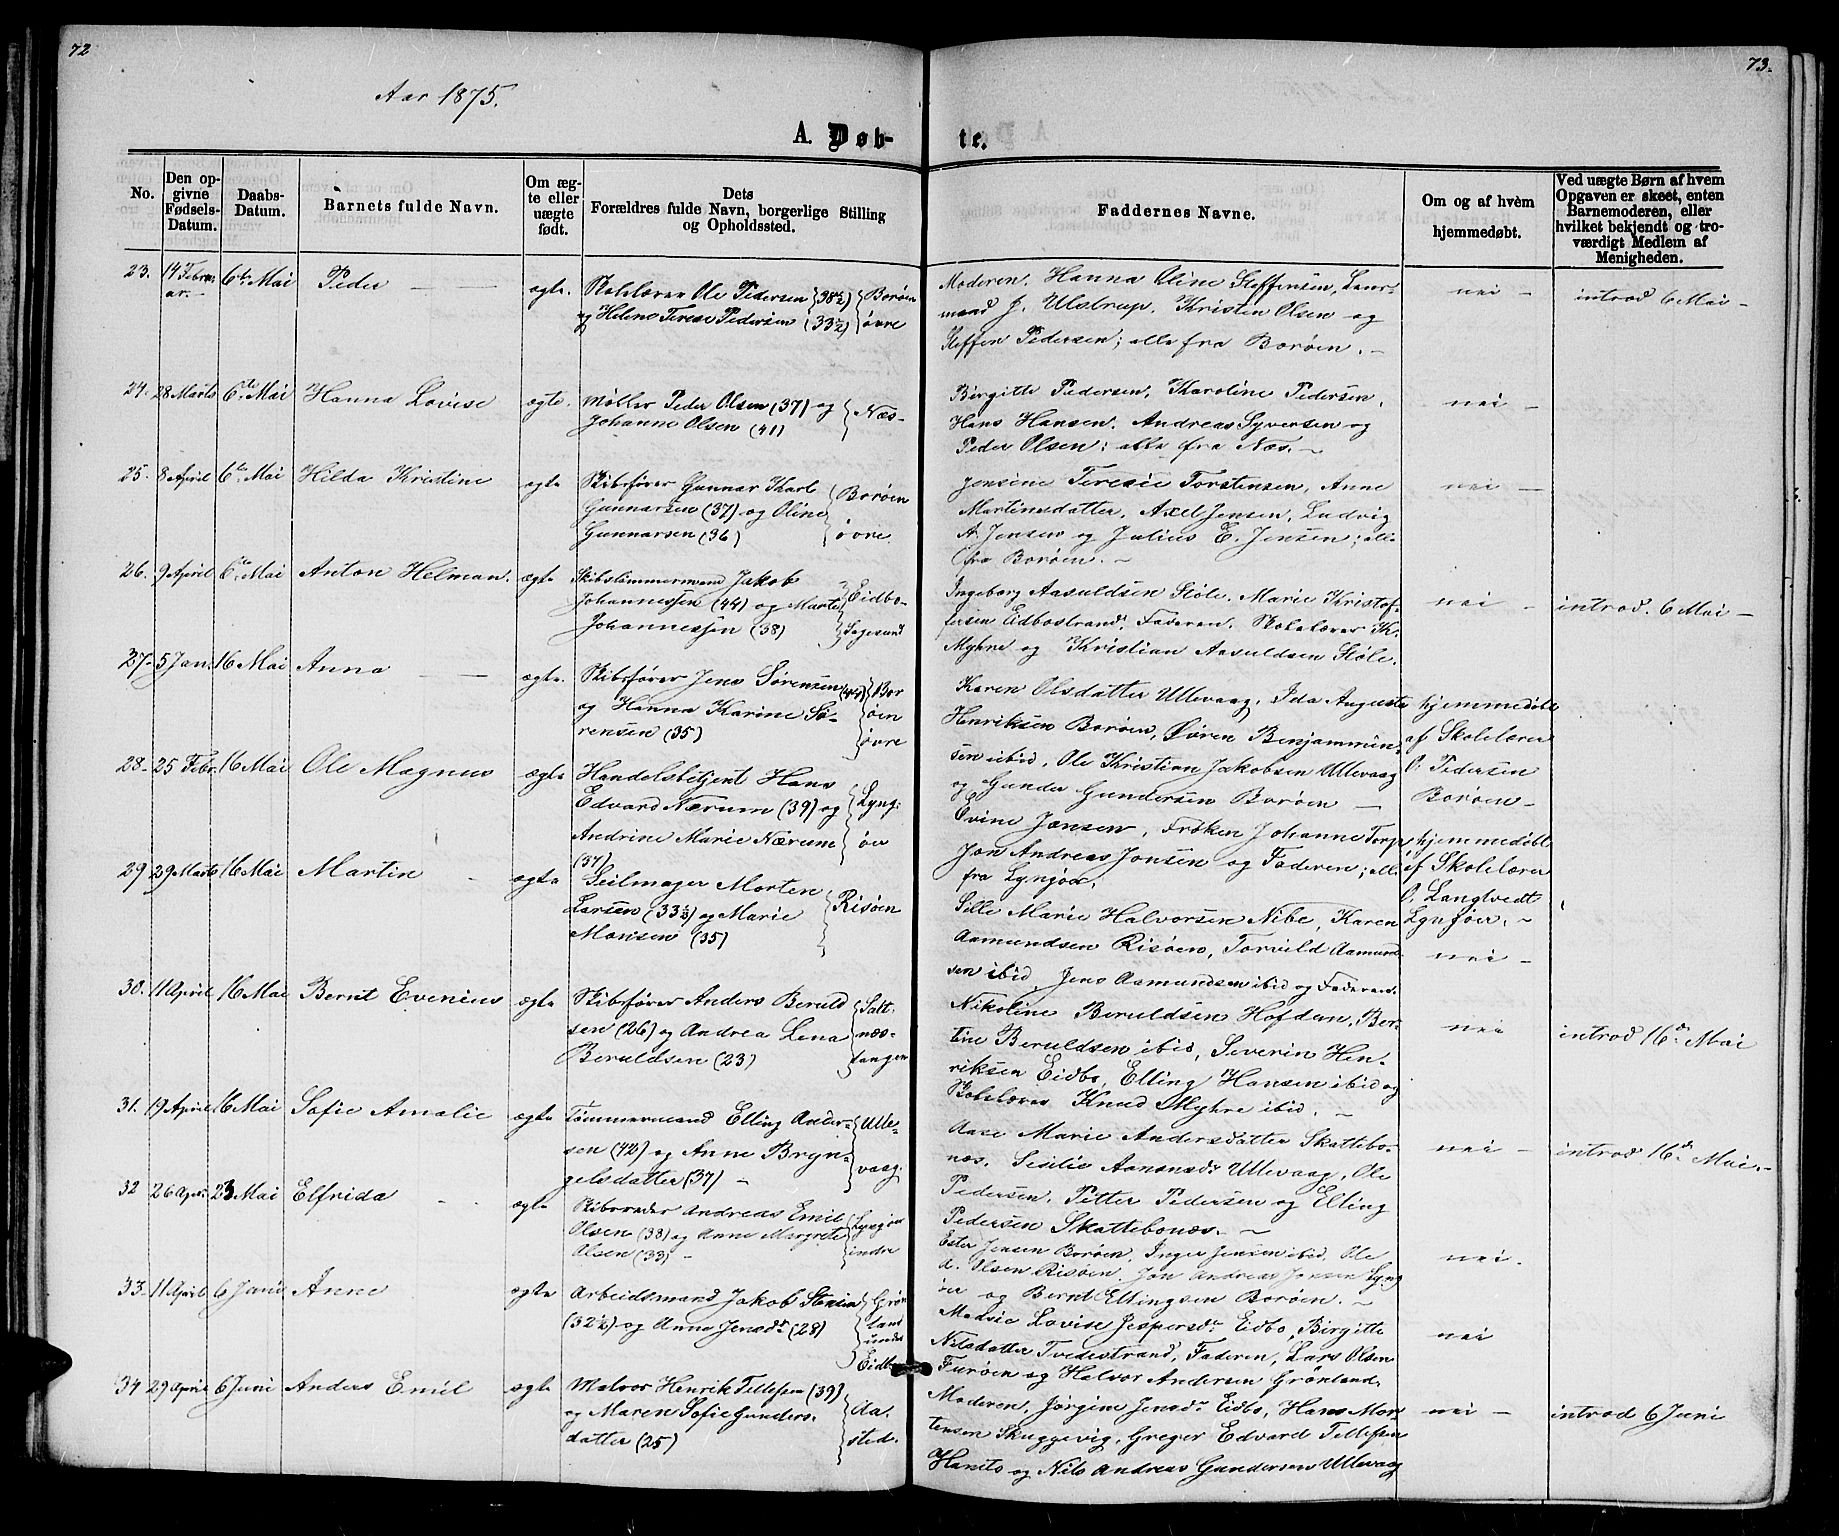 72
73.
Aar 1875.
A. Døb-
te.
No.
Den op-
givne
Fødsels-
Datum.
Daabs-
Datum.
Barnets fulde Navn.
Om æg-
te eller
uægte
født.
Dets
Forældres fulde Navn, borgerlige Stilling
og Opholdssted.
Faddernes Navne.
Om og af hvèm
hjemmedøbt.
Ved uægte Børn af hvem
Opgaven er skeet, enten
Barnemoderen, eller
hvilket bekjendt og tro-
værdigt Medlem af
Menigheden.
23. 14 Febru-
ar. 6te Mai Peder ægte. Skolelærer Ole Pedersen (38½) Borøen
og Helene Terese Pedersen (33½) øvre
Moderen, Hanna Oline Steffensen, Lens-
mand J. Ulstrup, Kristen Olsen og
Steffen Pedersen; alle fra Borøen. –
nei – introd 6 Mai –
24. 28 Marts 6te Mai Hanna Lovise ægte. Møller Peder Olsen (37) og Næs-
Johanne Olsen (41)
Birgitte Pedersen, Karoline Pedersen,
Hans Hansen, Andreas Syversen og
Peder Olsen; alle fra Næs. –
nei –
25. 8 April 6te Mai Hilda Kristine ægte Skibsfører Gunnar Karl Borøen
Gunnarsen (37) og Oline
Gunnarsen (36) øvre.
Jensine Teresie Torstensen, Anne
Martinsdatter, Axel Jensen, Ludvig
A. Jensen og Julius E. Jensen; alle
fra Borøen. –
nei –
26. 9 April 6te Mai Anton Helman. ægte Skibstømmermand Jakob Eidbo-
Johannessen (44) og Marte
Johannessen (38) Sagesund
Ingeborg Aasuldsen Støle, Marie Kristof-
fersen Eidbostrand, Faderen, Skolelærer K.
Myhre og Kristian Aasuldsen Støle.
nei – introd. 6 Mai –
27- 5 Jan. 16 Mai Anna ægte. Skibsfører Jens Sørensen (44) Bor
og Hanna Karine Sø- øen
rensen (35) øvre
Karen Olsdatter Ullevaag, Ida Auguste
Henriksen Borøen, Søren Benjamin-
sen ibid, Ole Kristian Jakobsen Ullevaag
og Gunder Gundersen Borøen –
hjemmedøbt
af Skolelærer
O. Pedersen
Borøen-
28- 25 Febr. 16 Mai Ole Magnus ægte Handelsbetjent Hans
Edvard Nærum (39) og Lyng-
Andrine Marie Nærum øer
(37)
Ovine Jansen, Frøken Johanne Torp,
Jon Andreas Jonsen og Faderen; alle
fra Lyngøer.
hjemmedøbt
af Skolelærer
O. Langtvedt
Lyngøer. –
29 29 Marts 16 Mai Martin ægte Seilmager Morten
Larsen (33½) og Marie Risøen
Monsen (35)
Sille Marie Halvorsen Nibe, Karen
Aamundsen Risøen, Torvild Aamund-
sen ibid, Jens Aamundsen ibid og Faderen.
nei –
30. 11 April 16 Mai Bernt Evenius ægte Skibsfører Anders Beruld Salt-
sen (26) og Andrea Lena næs-
Beruldsen (23) tangen
Nikoline Beruldsen Hofdan, Ber-
tine Beruldsen ibid, Severin Hen-
riksen Eidbo, Elling Hansen ibid og
Skolelærer Knud Myhre ibid. –
nei introd 16de Mai
31. 19 April 16 Mai Sofie Amalie ægte Tømmermand Elling Ander- Ulle-
sen (42) og Anne Bryn-
gelsdatter (37) – vaag
Aase Marie Andersdatter Skattebo-
næs, Sesilie Aanonsdr Ullevaag, Ole
Pedersen, Petter Pedersen og Elling
Pedersen Skattebonæs. –
nei – introd 16de Mai. –
32 26 Apr. 23 Mai Elfrida ægte Skibsreder Andreas Emil Lyngøer
Olsen (33) og Anne Margrete
Olsen (33) – indre
Ester Jensen Borøen, Inger Jensen ibid, Ole
A. Olsen Risøen, Jon Andreas Jensen Lyng
øer og Bernt Ellingsen Borøen. –
nei.
33. 11 April 6 Juni Anne ægte Arbeidsmand Jakob Stensen Grøn
(32½) og Anna Jensdr (28) land
under
Eidbo
Madsie Lovise Jespersdr Eidbo, Birgitte
Nilsdatter Tvedestrand, Faderen, Lars Olsen
Furøen og Halvor Andersen Grønland.
nei
34 29 April 6 Juni Anders Emil ægte Matros Henrik Tellefsen (39)
og Maren Sofie Gunders- Aa-
datter (25) sted.
Moderen, Jørgine Jensdr Eidbo, Hans Mor-
tensen Skuggevig, Greger Edvard Tellefsen
Hanto og Nils Andreas Gundersen Ullevaag
nei – introd 6 Juni